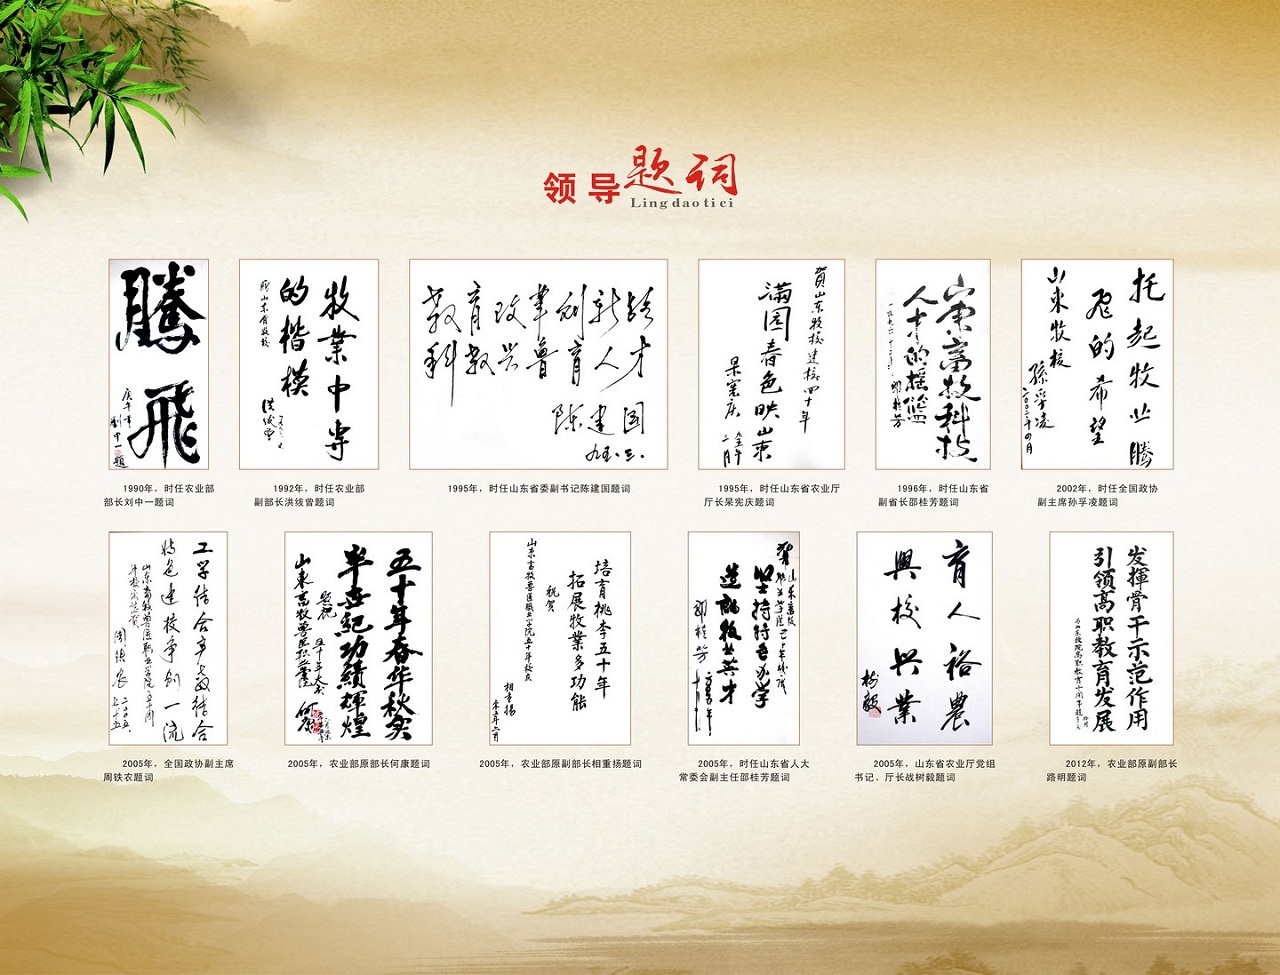 领导题词
Lingdaotici
腾飞
庚午年
刘中一题
牧业中专
的楷模
洪绂曾
教育改革创新路
科教兴鲁育人才
陈建国
九五.三.
贺山东牧校建校四十年
满园春色映山东
杲宪庆
九五年
二月
山东畜牧科技
人才的摇篮
邵桂芳
托起牧业腾
飞的希望
山东牧校
孙孚凌
二〇〇二年四月
1990年，时任农业部
部长刘中一题词
1992年，时任农业部
副部长洪绂曾题词
1995年，时任山东省委副书记陈建国题词
1995年，时任山东省农业厅
厅长杲宪庆题词
1996年，时任山东省
副省长邵桂芳题词
2002年，时任全国政协
副主席孙孚凌题词
工学结合产教结合
特色建校争创一流
周铁农
二〇〇五.
七.十五.
五十年春华秋实
半世纪功绩辉煌
山东畜牧兽医职业学院
何康
培育桃李五十年
拓展牧业多功能
祝贺
山东畜牧兽医职业学院五十年校庆
相重扬
坚持特色办学
造就牧业英才
邵桂芳
育人裕农
兴校兴业
树毅
发挥骨干示范作用
引领高职教育发展
2005年，全国政协副主席
周铁农题词
2005年，农业部原部长何康题词
2005年，农业部原副部长相重扬题词
2005年，时任山东省人大
常委会副主任邵桂芳题词
2005年，山东省农业厅党组
书记、厅长战树毅题词
2012年，农业部原副部长
路明题词